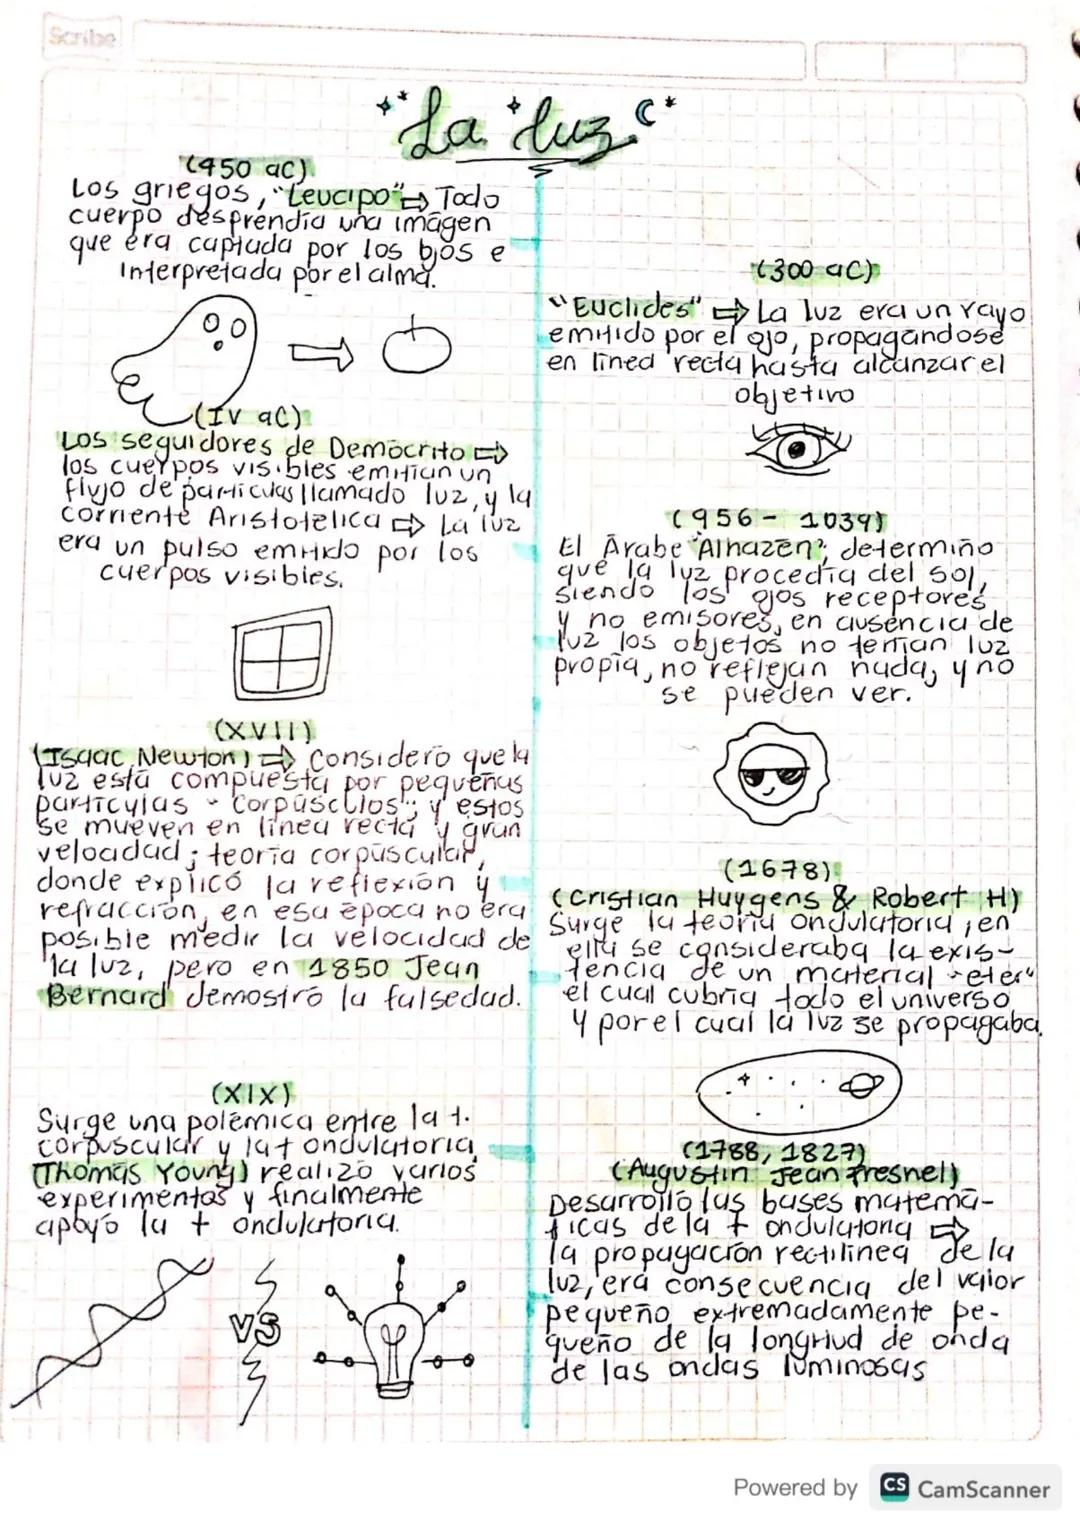 Scribe
La luz
(450 aC)
Los griegos, "Leucipo" ⇨ Todo
cuerpo desprendía una imágen
que era captada por los ojos e
Interpretada por el alma.
(300 aC)
"Euclides" ⇨ La luz era un rayo
emitido por el ojo, propagándose
en línea recta hasta alcanzar el
objetivo
(IV aC)
Los seguidores de Demócrito ⇨
los cuerpos visibles emitían un
flujo de partículas llamado luz, y la
corriente Aristotélica ⇨ La luz
era un pulso emitido por los
cuerpos visibles.
(956 - 1039)
El Árabe "Alhazen", determinó
que la luz procedía del sol,
siendo los ojos receptores
y no emisores, en ausencia de
luz los objetos no tenían luz
propia, no reflejan nada, y no
se pueden ver.
(XVII)
(Isaac Newton) ⇨ Consideró que la
luz está compuesta por pequeñas
partículas "corpúsculos"; y estos
se mueven en línea recta y gran
velocidad; teoría corpúscular,
donde explicó la reflexión y
refracción, en esa época no era
posible medir la velocidad de
la luz, pero en 1850 Jean
Bernard demostró la falsedad.
(1678)
(Cristian Huygens & Robert H)
Surge la teoría ondulatoria, en
ella se consideraba la exis-
tencia de un material "eter"
el cual cubría todo el universo
y por el cual la luz se propagaba.
(XIX)
Surge una polémica entre la t.
corpuscular y la t ondulatoria,
(Thomas Young) realizó varios
experimentos y finalmente
apoyó la t ondulatoria.
VS
(1788, 1827)
(Augustin Jean Fresnel)
Desarrolló las bases matemá-
ticas de la t ondulatoria ⇨
la propagación rectilínea de la
luz, era consecuencia del valor
pequeño extremadamente pe-
queño de la longitud de onda
de las ondas luminosas
Powered by CS CamScanner